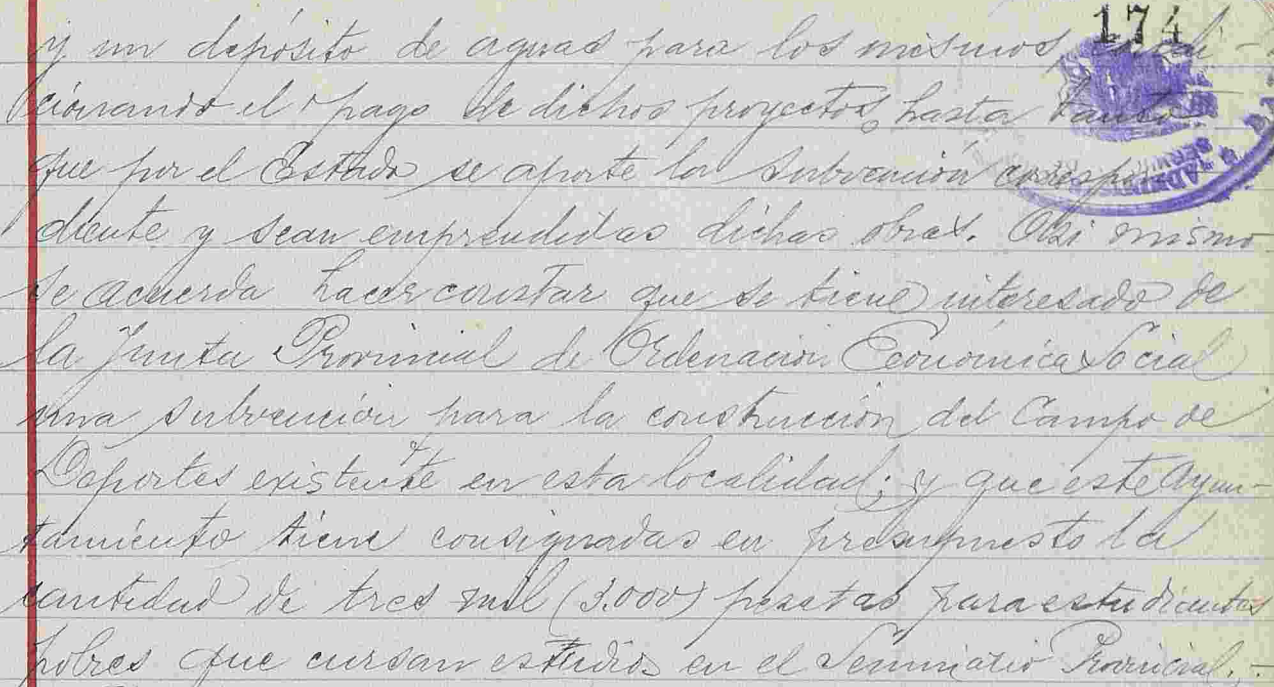 174
y un depósito de aguas para los mismos, condi-
cionando el pago de dichos proyectos, hasta tanto
que por el Estado se aporte la subvención correspon
diente y sean emprendidas dichas obras. Asi mismo
se acuerda hacer constar que se tiene interesado de
la Junta Provincial de Ordenación Económica Social
una subvención para la construcción del Campo de
Deportes existente en esta localidad; y que este Ayun-
tamiento tiene consignadas en presupuesto la
cantidad de tres mil (3.000) pesetas para estudiantes
pobres que cursan estudios en el Seminario Provincial.-